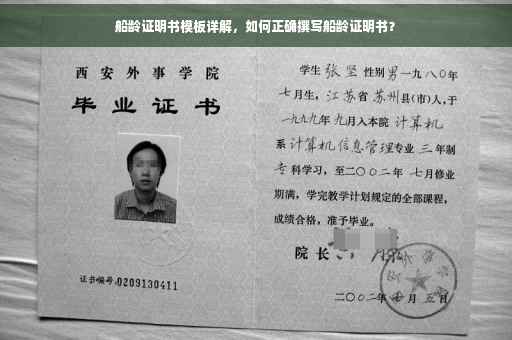 船龄证明书模板详解，如何正确撰写船龄证明书？
西安外事学院
毕业证书
证书编号:0209130411
学生 张坚 性别 男 一九八〇年
七月生，江苏省 苏州县(市)人，于
一九九九年 九月入本院 计算机
系 计算机信息管理专业 三 年制
专科学习，至二〇〇二年 七月修业
期满，学完教学计划规定的全部课程，
成绩合格，准予毕业。
院长
二〇〇二年 七 月 五 日